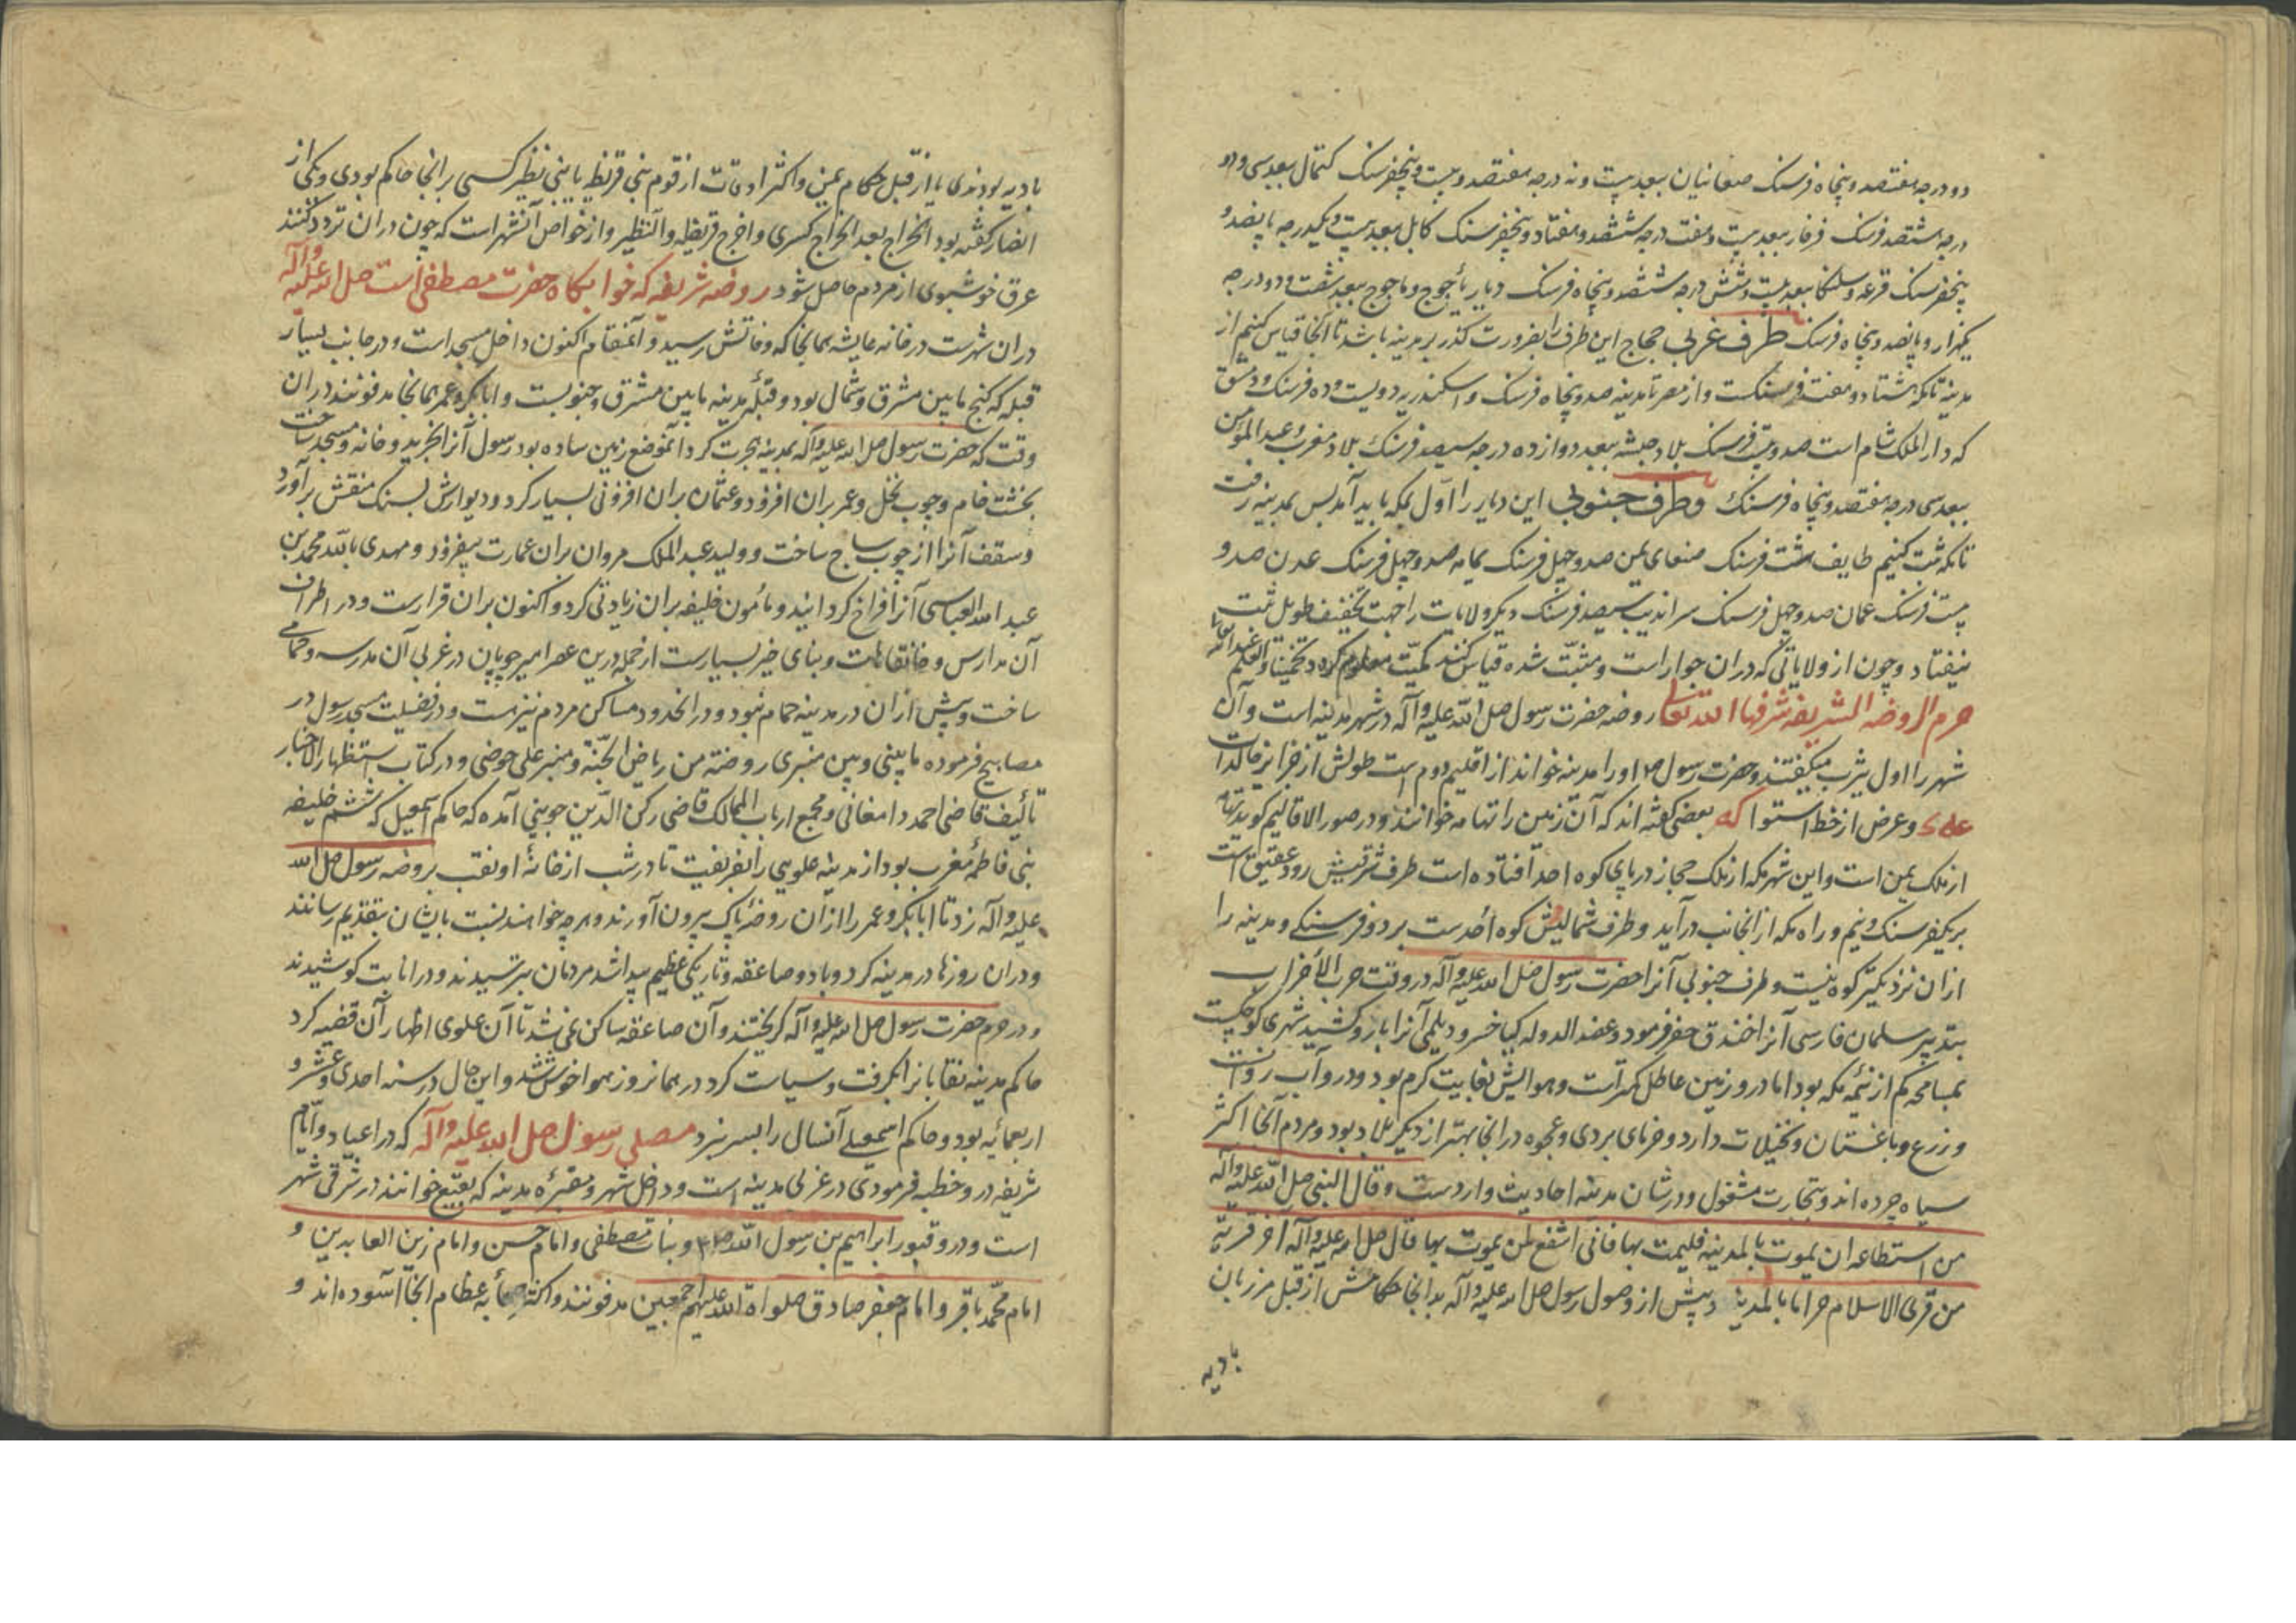 دو درجه هفتصد و پنجاه فرسنک صغانیان ببعد بیست و نه درجه هفتصد و بیست و پنجفرسنک کتمال ببعد سی و دو
درجه هشتصد فرسنک فرفار ببعد بیست و هفت درجه ششصد و هفتاد و پنجفرسنک کابل ببعد بیست و یکدرجه پانصد و
پنجفرسنک قرغه و سلنکا ببعد بیست و شش درجه ششصد و پنجاه فرسنک دیار یأجوج و ماجوج ببعد شصت و دو درجه
یکهزار و پانصد و پنجاه فرسنک طرف غربی حجاج این طرف را بضرورت گذر بر مدینه باشد تا آنجا قیاس کنیم از
مدینه تا مکه هشتاد و هفت فرسنکست و از مصر تا مدینه صد و پنجاه فرسنک و اسکندریه دویست و ده فرسنک و دمشق
که دار الملک شام است صد و بیست فرسنک بلاد حبشه ببعد دوازده درجه سیصد فرسنک بلاد مغرب عبد المؤمن
ببعد سی درجه هفتصد و پنجاه فرسنک وطرف جنوبی این دیار را اول بمکه باید آمد پس بمدینه رفت
تا مکه ثبت کنیم طایف هشت فرسنک صنعای یمن صد و چهل فرسنک یمامه صد و چهل فرسنک عدن صد و
بیست فرسنک عمان صد و چهل فرسنک سراندیب سیصد فرسنک دیکر ولایات را جهت تخفیف طویل ثبت
نیفتاد و چون از ولایاتی که در آن جوار است و مثبت شده قیاس کنند کمیت معلوم کردد تخمینا والعلم عند الله تعالی
حرم الروضه الشریفه شرفها الله تعالی روضه حضرت رسول صلی الله علیه و آله در شهر مدینه است و آن
شهر را اول یثرب میکفتند و حضرت رسول ص او را مدینه خواند از اقلیم دوم است طولش از جزایر خالدات
و عرض از خط استوا که بعضی کفته اند که آن زمین را تهامه خوانند و در صور الاقالیم کوید تهامه
از ملک یمن است و این شهر مکه از ملک حجاز در پای کوه احد افتاده است طرف شرقیش رود عقیق است
بر یکفرسنک و نیم و راه مکه از انجانب در آید و طرف شمالیش کوه احدست بر دو فرسنکی و مدینه را
ازان نزدیکتر کوه نیست و طرف جنوبی آنرا حضرت رسول صلی الله علیه و آله در وقت حرب الأحزاب
بتدبیر سلمان فارسی آنرا خندق حفر فرمود و عضد الدوله کیا خسرو دیلمی آنرا بارو کشید شهری کوچکست
بمساحه کم از نیمه مکه بود اما درو زمین عاطل کمترست و هوایش بغایت کرم بود و درو آب روانست
و زرع و باغستان و نخیلات دارد و خرمای بردی و عجوه در آنجا بهتر از دیکر بلاد بود و مردم آنجا اکثر
سیاه چرده اند و بتجارت مشغول و در شان مدینه احادیث واردست وقال النبی صلی الله علیه و آله
من استطاعه ان یموت بالمدینه فلیمت بها فانی اشفع لمن یموت بها قال صلی الله علیه و آله اخر قریة
من قری الاسلام خرابا بالمدینه و پیش از وصول رسول صلی الله علیه و آله بدانجا حکامش از قبل مرزبان
بادیه
بادیه بودندی یا از قبل حکام یمن و اکثر اوقات از قوم بنی قریظه یا بنی نظیر کسی بر انجا حاکم بودی و یکی از
انصار کفته بود الخراج بعد الخراج کسری و اخراج قریظه و النظیر و از خواص آنشهر است که چون در ان تردد کنند
عرق خوشبوی از مردم حاصل شود روضه شریفه که خوابکاه حضرت مصطفی است صلی الله علیه و آله
دران شهرست در خانه عایشه همانجا که وفاتش رسید و آنمقام اکنون داخل مسجد است و در جانب یسار
قبله که کنج مابین مشرق و شمال بود و قبله مدینه مابین مشرق و جنوبست و ابابکر و عمر همانجا مدفونند دران
وقت که حضرت رسول صلی الله علیه و آله بمدینه هجرت کرد آنموضع زمین ساده بود رسول آنرا بخرید و خانه و مسجد ساخت
بخشت خام و چوب نخل و عمر بران افزود و عثمان بران افزونی بسیار کرد و دیوارش بسنک منقش بر آورد
وسقف آنرا از چوب ساج ساخت و ولید عبد الملک مروان بران عمارت بیفزود و مهدی بالله محمد بن
عبد الله العباسی آنرا فراخ کردانید و مأمون خلیفه بران زیادتی کرد و اکنون بران قرارست و در اطراف
آن مدارس و خانقاهات و بنای خیر بسیارست از جمله درین عصر امیر چوپان در غربی آن مدرسه و حمامی
ساخت و پیش ازان در مدینه حمام نبود و در انحدود مساکن مردم نیز هست و در فضیلت مسجد رسول در
مصابیح فرموده ما بیتی و بین منبری روضته من ریاض الجنّة و منبر علی حوضی و در کتاب استظهار الاخبار
تألیف قاضی احمد دامغانی و مجمع ارباب الممالک قاضی رکن الدین جوینی آمده که حاکم اسمعیل که ششم خلیفه
بنی فاطمه مغرب بود از مدینه علویی را بفریفت تا در شب از خانه او نقب بروضه رسول صلی الله
علیه و آله زد تا ابابکر و عمر را ازان روضه پاک بیرون آورند و هرچه خواهند نسبت بایشان بتقدیم رسانند
ودران روزها در مدینه کرد و باد و صاعقه و تاریکی عظیم پیدا شد مردمان بترسیدند و در انابت کوشیدند
و در حرم حضرت رسول صلی الله علیه و آله کریختند و آن صاعقه ساکن نمی شد تا آن علوی اظهار آن قضیه کرد
حاکم مدینه نقابانرا بکرفت و سیاست کرد در همانروز هوا خوش شد و این حال در سنه احدی وعشر و
اربعمائه بود و حاکم اسمعیلی آنسال را بسر نبرد مصلی رسول صلی الله علیه و آله که در اعیاد و ایام
شریفه درو خطبه فرمودی در غربی مدینه است و داخل شهر و مقبره مدینه که بقیع خوانند در شرقی شهر
است و درو قبور ابراهیم بن رسول الله ص و بنات مصطفی و امام حسن و امام زین العابدین و
امام محمد باقر و امام جعفر صادق صلواة الله علیهم اجمعین مدفونند و اکثر صحابه عظام انجا آسوده اند و